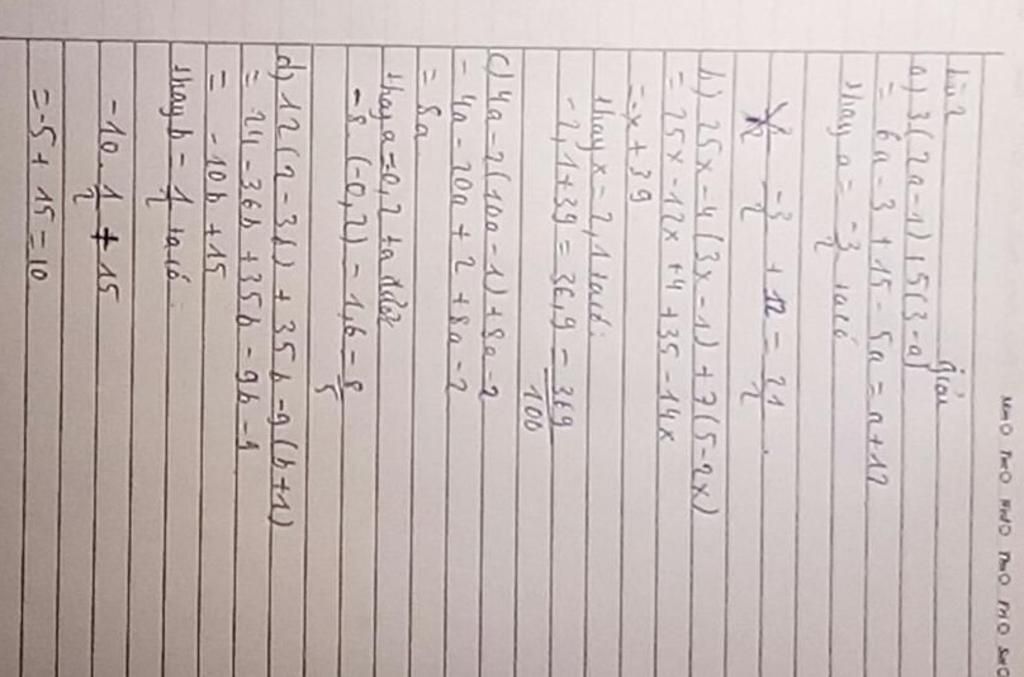 bài 2
Giải
a) 3(2a-1)+5(3-a)
= 6a-3+15-5a = a+12
thay a = -3/2 ta có
-3/2 + 12 = 21/2.
b) 25x-4(3x-1)+7(5-2x)
= 25x-12x+4+35-14x
= -x+39
thay x = 2,1 ta có:
-2,1+39 = 36,9 = 369/100
c) 4a-2(10a-1)+8a-2
- 4a-20a+2+8a-2
= 8a
thay a=0,2 ta được
-8.(-0,2) = 1,6 = 8/5
d) 12(2-3b)+35b-9(b+1)
= 24-36b+35b-9b-9
= -10b+15
thay b = 1/2 ta có:
-10.1/2+15
= -5+15=10